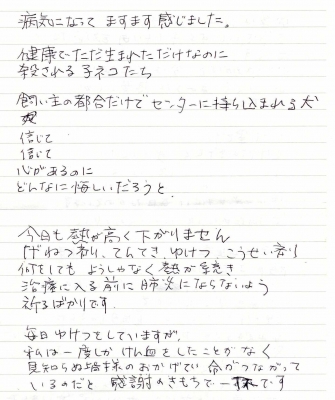 病気になって ますます感じました。
健康でただ生まれただけなのに
殺される子ネコたち
飼い主の都合だけでセンターに持ち込まれる犬
信じて
信じて
心があるのに
どんなに悔しいだろうと
今日も熱が高く下がりません
げねつ剤、てんてき、ゆけつ、こうせい剤
何をしても ようしゃなく熱が続き
治療に入る前に肺炎にならないよう
祈るばかりです
毎日ゆけつをしていますが、
私は一度しかけん血をしたことがなく
見知らぬ皆様のおかげでい 命がつながって
いるのだと 感謝のきもちで一杯です